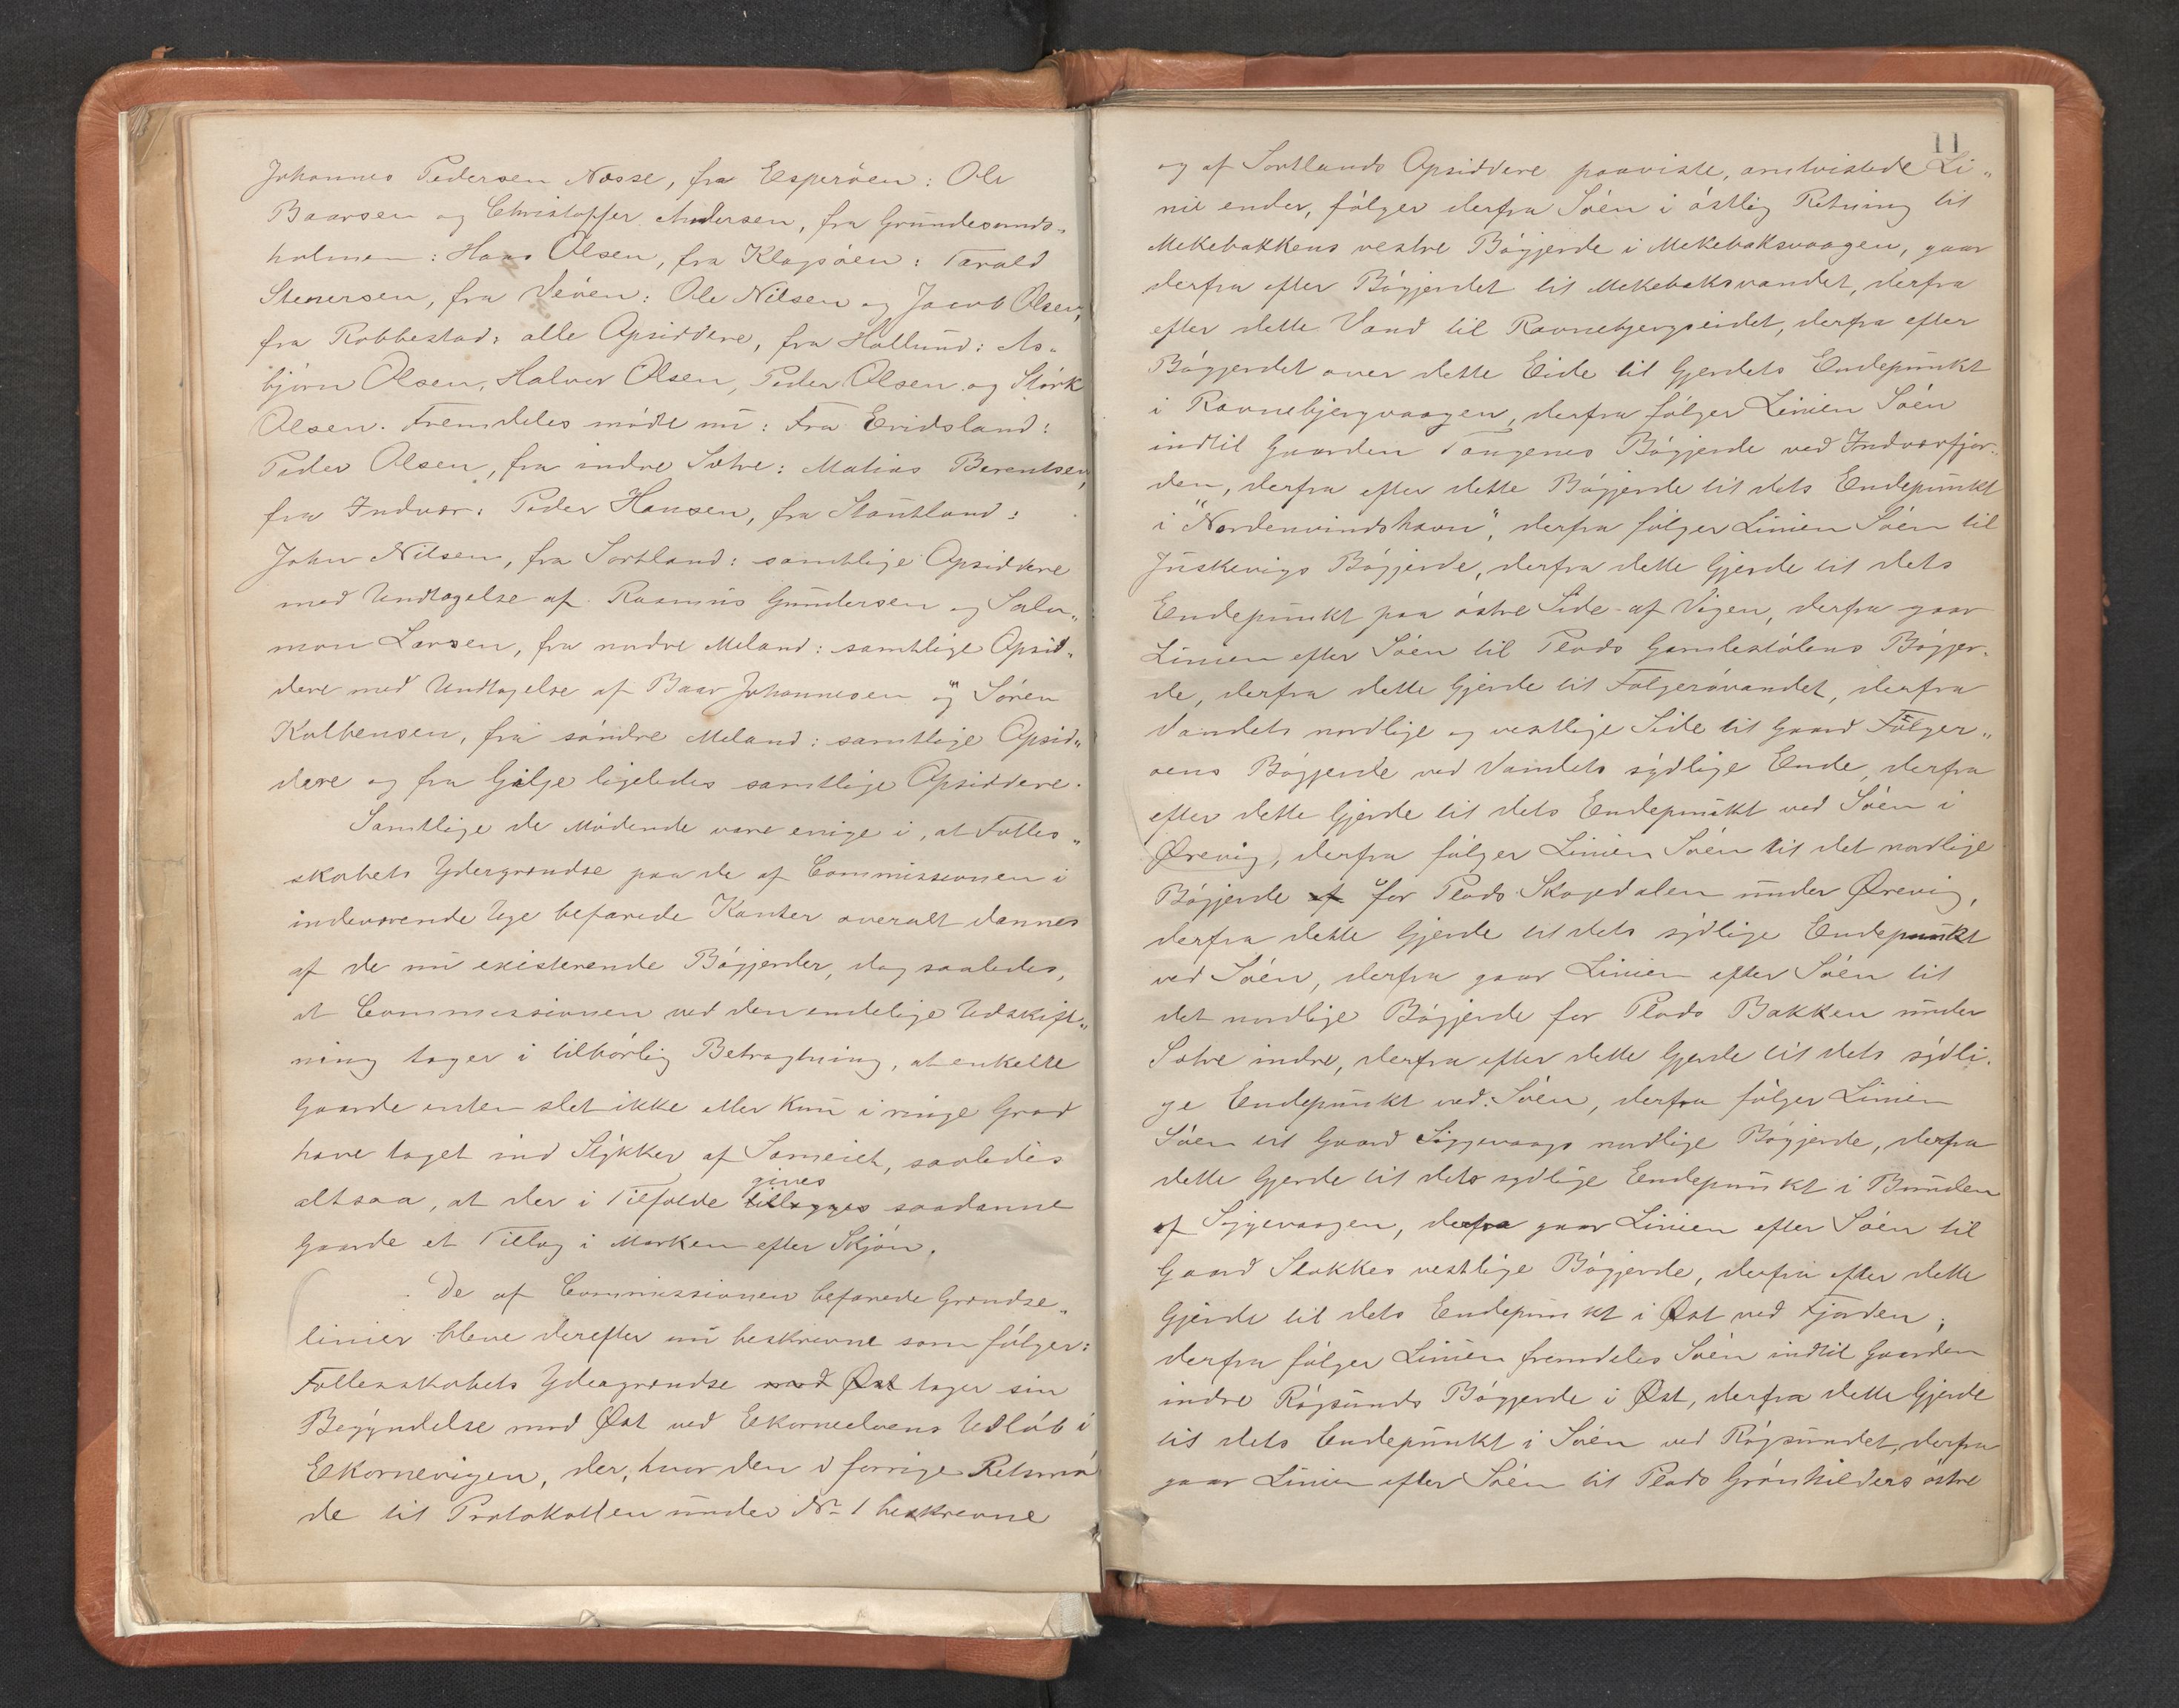 Johannes Pedersen Nosse, fra Esperöen: Ole
Baarsen og Christoffer Andersen, fra Grundesunds„
holmen: Hans Olsen, fra Klapöen: Tarald
Stenersen, fra Veöen: Ole Nilsen og Jacob Olsen,
fra Robbestad: alle Opsiddere, fra Hollund: As„
björn Olsen, Halvor Olsen, Peder Olsen og Störk
Olsen. Fremdeles mödte nu: Fra Eridsland:
Peder Olsen, fra indre Sætre: Matias Berentsen,
fra Indvær: Peder Hansen, fra Stautland:
John Nilsen, fra Sortland: samtlige Opsiddere
med Undtagelse af Rasmus Gundersen og Salo„
mon Larsen, fra nordre Meland: samtlige Opsid„
dere med Undtagelse af Baar Johannesen og Sören
Kolbensen, fra söndre Meland: samtlige Opsid„
dere og fra Gilje ligeledes samtlige Opsiddere.
Samtlige de Mödende vare enige i, at Fælles„
skabets Ydergrændse paa de af Commissionen i
indeværende Uge befarede Kanter overalt dannes
af de nu existerende Bögjerder, dog saaledes,
at Commissionen ved den endelige Udskift„
ning tager i tilbörlig Betragtning, at enkelte
Gaarde enten slet ikke eller kun i ringe Grad
have taget ind Stykker af Sameiet, saaledes
gives
altsaa, at der i Tilfælde tillægges saadanne
Gaarde et Tillæg i Marken efter Skjön.
De af Commissionen befarede Grændse„
linier bleve derefter nu beskrevne som fölger:
Fællesskabets Ydergrændse mod Øst tager sin
Begyndelse mod Øst ved Ekorneelvens Udlöb i
Ekornevigen, der, hvor den i forrige Retsmö
de til Protokollen under No 1 beskrevne
11
og af Sortlands Opsiddere paaviste, omtvistede Li„
nie ender, fölger derfra Söen i östlig Retning til
Mekebakkens vestre Bögjerde i Mekebaksvaagen, gaar
derfra efter Bögjerdet til Mekebaksvandet, derfra
efter dette Vand til Ravnebjergseidet, derfra efter
Bögjerdet over dette Eide til Gjerdets Endepunkt
i Ravnebjergvaagen, derfra fölger Linien Söen
indtil Gaarden Tangenes Bögjerde ved Indværfjor„
den, derfra efter dette Bögjerde til dets Endepunkt
i "Nordenvindshavn", derfra fölger Linien Söen til
Juskevigs Bögjerde, derfra dette Gjerde til dets
Endepunkt paa östre Side af Vigen, derfra gaar
Linien efter Söen til Plads Gamlestölens Bögjer„
de, derfra dette Gjerde til Fölgerövandet, derfra
Vandets nordlige og vestlige Side til Gaard Fölger„
öens Bögjerde ved Vandets sydlige Ende, derfra
efter dette Gjerde til dets Endepunkt ved Söen i
Ørevig, derfra fölger Linien Söen til det nordlige
Bögjerde af for Plads Skogedalen under Ørevig,
derfra dette Gjerde til dets sydlige Endepunkt
ved Söen, derfra gaar Linien efter Söen til
det nordlige Bögjerde for Plads Bakken under
Sætre indre, derfra efter dette Gjerde til dets sydli„
ge Endepunkt ved Söen, derfra fölger Linien
Söen til Gaard Siggevaags nordlige Bögjerde, derfra
dette Gjerde til dets sydlige Endepunkt i Bunden
af Siggevaagen, derfra gaar Linien efter Söen til
Gaard Stokkes vestlige Bögjerde, derfra efter dette
Gjerde til dets Endepunkt i Øst ved Fjorden,
derfra fölger Linien fremdeles Söen indtil Gaarden
indre Rögsunds Bögjerde i Øst, derfra dette Gjerde
til dets Endepunkt i Söen ved Rögsundet, derfra
gaar Linien efter Söen til Plads Grönhilders östre